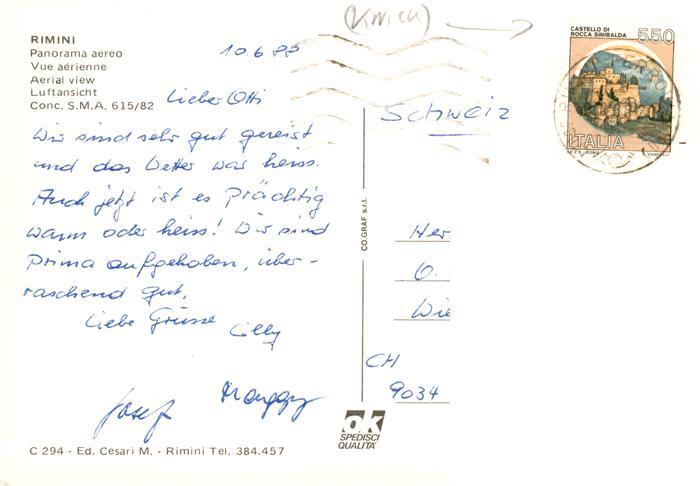 RIMINI
Panorama aereo
Vue aérienne
Aerial view
Luftansicht
Conc. S.M.A. 615/82
10.6.88
(KNICK)
CASTELLO DI
ROCCA SINIBALDA
550
ITALIA
Schweiz
Lieber Otti
Wir sind sehr gut gereist
und das Wetter war heiss.
Auch jetzt ist es prächtig
warm oder heiss! Wir sind
prima aufgehoben, über-
raschend gut.
Liebe Grüsse Lilly
Josef
CO.GRAF s.r.l.
Her
O.
Wie
CH
9034
ok
SPEDISCI
QUALITA'
C 294 - Ed. Cesari M. - Rimini Tel. 384.457